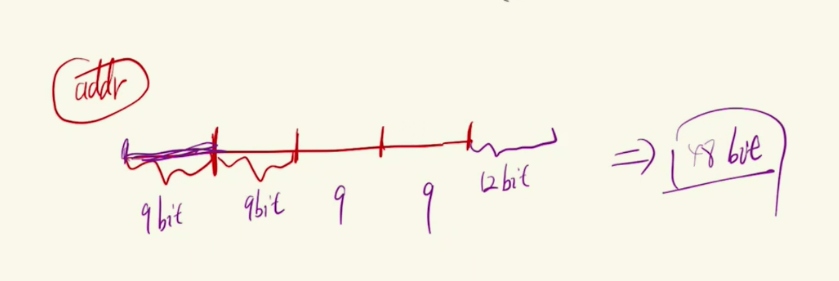 addr
9bit 9bit 9 9 12bit
⇒ 48 bit